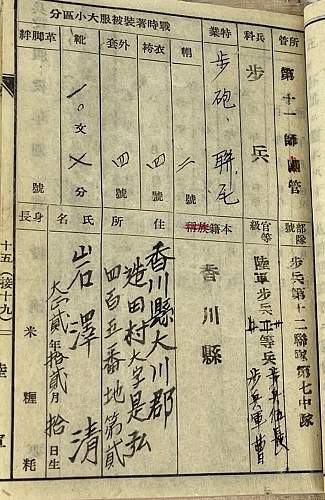 所管 第十一師團管
兵科 步兵
特業 步砲、聯
戰時著裝被服大小區分
帽 二號
衣袴 四號
外套 四號
靴 一〇文 分
革脚絆 號
部隊號 步兵第十二聯隊第七中隊
官等級 陸軍步兵 等兵
步兵伍長
步兵軍曹
本籍族稱 香川縣
住所 香川縣大川郡
造田村大字是弘
四百五番地第貳
氏名 岩澤 清
大正貳年拾貳月拾日生
身長 米 糎 粍
十五(接十九) 陸軍